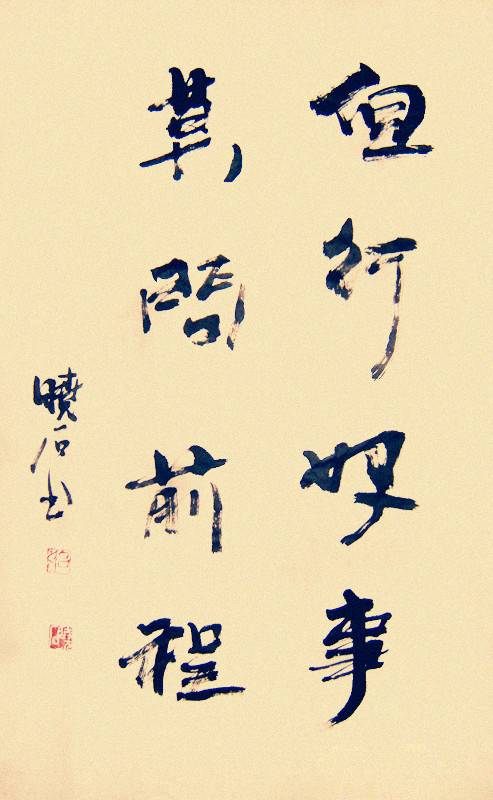 但行好事
莫問前程
曉石书